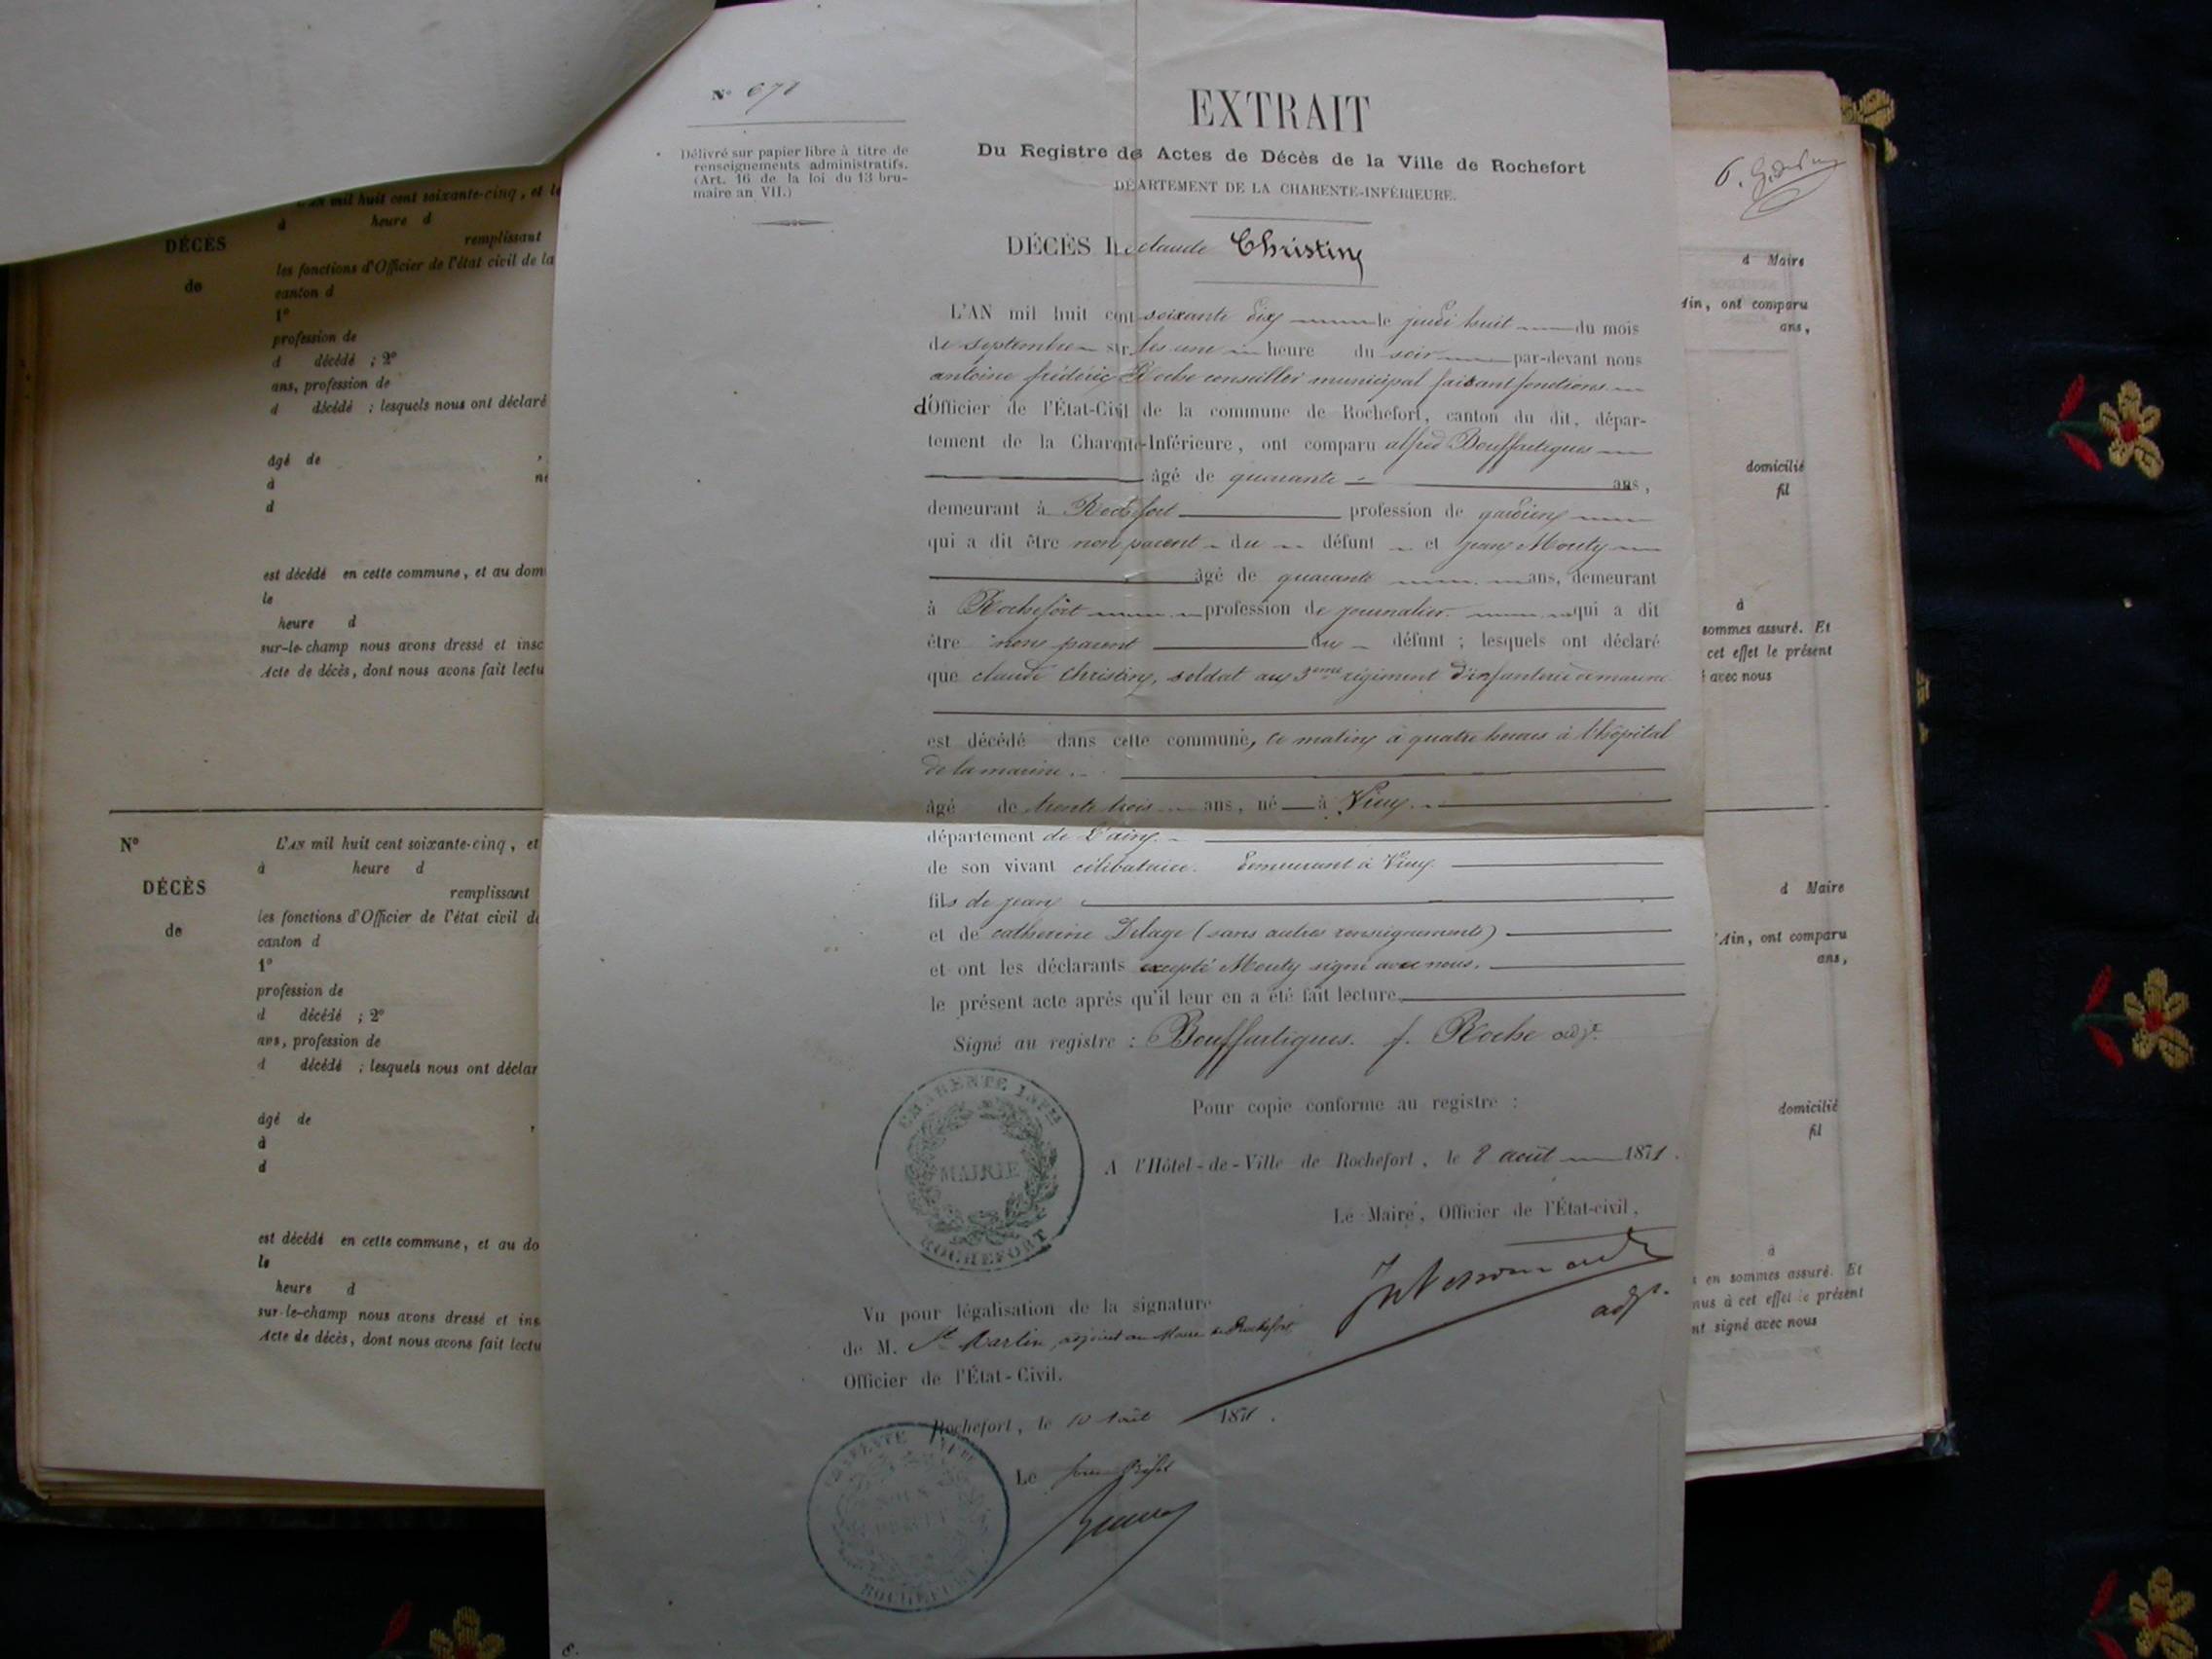 N° 671
Délivré sur papier libre à titre de
renseignements administratifs.
(Art. 16 de la loi du 13 bru-
maire an VII.)
EXTRAIT
Du Registre des Actes de Décès de la Ville de Rochefort
DÉPARTEMENT DE LA CHARENTE-INFÉRIEURE.
DÉCÈS De claude Christin
L'AN mil huit cent soixante dix le jeudi huit du mois
de septembre sur les une heure du soir par-devant nous
antoine frédéric Roche conseiller municipal faisant fonctions
d'Officier de l'État-Civil de la commune de Rochefort, canton du dit, dépar-
tement de la Charente-Inférieure, ont comparu alfred Bouffartigues
âgé de quarante ans,
demeurant à Rochefort profession de gardien
qui a dit être non parent du défunt et jean Mouty
âgé de quarante ans, demeurant
à Rochefort profession de journalier qui a dit
être non parent du défunt ; lesquels ont déclaré
que claude Christin, soldat au 3eme régiment d'infanterie de marine
est décédé dans cette commune, ce matin à quatre heures à l'hôpital
de la marine.
âgé de trente trois ans, né à Vieu
département de L'ain.
de son vivant célibataire. demeurant à Vieu
fils de jean
et de catherine Delage (sans autres renseignements)
et ont les déclarants excepté Mouty signé avec nous.
le présent acte après qu'il leur en a été fait lecture.
Signé au registre : Bouffartigues. f. Roche adjt.
Pour copie conforme au registre :
A l'Hôtel-de-Ville de Rochefort, le 8 août 1871.
Le Maire, Officier de l'État-civil,
adjt.
CHARENTE INFRE
MAIRIE
ROCHEFORT
Vu pour légalisation de la signature
de M. St Martin, adjoint au Maire de Rochefort
Officier de l'État-Civil.
Rochefort, le 10 Août 1871.
Le Sous-Préfet
CHARENTE INFRE
SOUS
ROCHEFORT
L'AN mil huit cent soixante-cinq, et le
à heure d
DÉCÈS
remplissant
les fonctions d'Officier de l'état civil de la
de
canton d
1°
profession de
d décédé ; 2°
ans, profession de
d décédé ; lesquels nous ont déclaré
âgé de ,
à né
d
est décédé en cette commune, et au dom
le
heure d
sur-le-champ nous avons dressé et insc
Acte de décès, dont nous avons fait lectu
N°
L'AN mil huit cent soixante-cinq, et
à heure d
DÉCÈS
remplissant
les fonctions d'Officier de l'état civil de
de
canton d
1°
profession de
d décédé ; 2°
ans, profession de
d décédé ; lesquels nous ont déclar
âgé de ,
à
d
est décédé en cette commune, et au do
le
heure d
sur-le-champ nous avons dressé et ins
Acte de décès, dont nous avons fait lectu
6.
d Maire
Ain, ont comparu
ans,
domicilié
fil
à
sommes assuré. Et
cet effet le présent
avec nous
d Maire
'Ain, ont comparu
ans,
domicilié
fil
à
en sommes assuré. Et
nus à cet effet le présent
nt signé avec nous